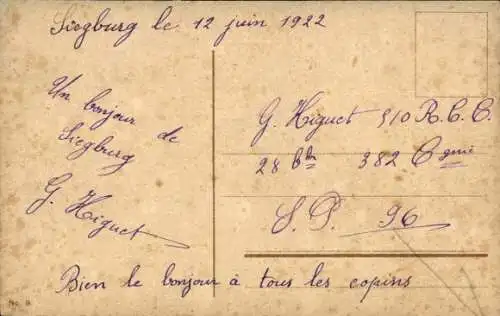 Siegburg le 12 juin 1922
Un bonjour de
Siegburg
G. Higuet
G. Higuet 910 R.C.C.
28 Bon 382 Cgnie
S. P. 96
Bien le bonjour à tous les copins
No. 9